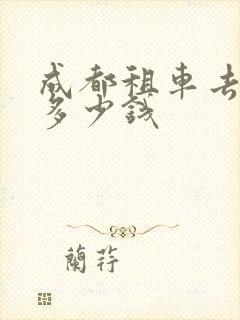 成都租車去
多少錢
蘭荇